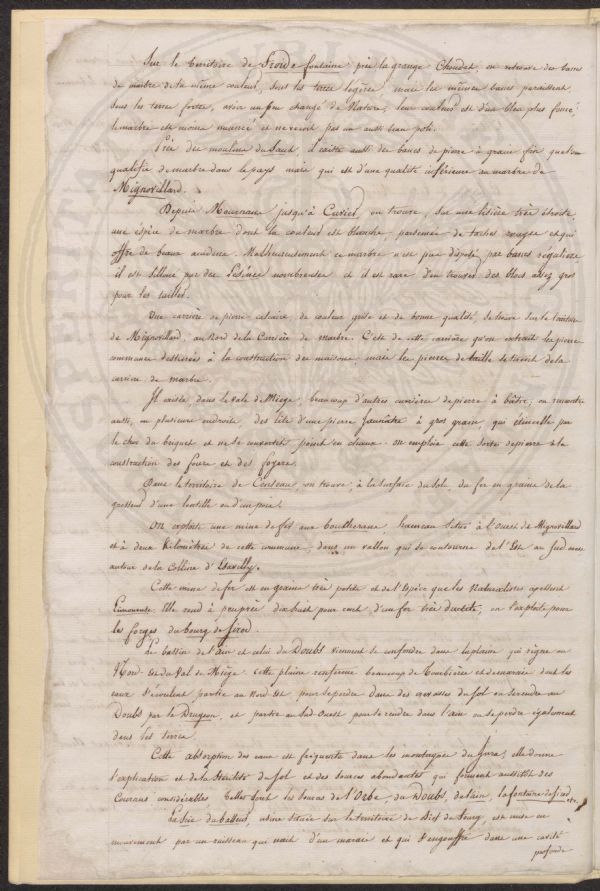 Sur le territoire de Froide fontaine près la grange Chaudet, on retrouve des bancs
de marbre de la même couleur, sous les terres légères, mais les mêmes bancs paraissent,
sous les terres fortes, avoir un peu changé de Nature, leur couleur est d'un bleu plus foncé
le marbre est moins nuancé et ne reçoit pas un aussi beau poli.
Près des moulins du Saut il existe aussi des bancs de pierre à grain fin que l'on
qualifie de marbre dans le pays mais qui est d'une qualité inférieure au marbre de
Mignovillard.
Depuis Mournans jusqu'à Cuvier, on trouve, sur une lisière très étroite,
une espèce de marbre dont la couleur est blanche, parsemée de taches rouges et qui
offre de beaux accidens. Malheureusement ce marbre n'est pas disposé par bancs réguliers
il est sillonné par des nombreuses et il est rare d'en trouver des blocs assez gros
pour les tailler.
Une carrière de pierre calcaire de couleur grise et de bonne qualité, se trouve sur le territoire
de Mignovillard, au Nord de la Carrière de marbre. C'est de cette carrière qu'on extrait les pierres
communes destinées à la construction des maisons, mais les pierres de taille se tirent de la
carrière de marbre.
Il existe, dans le Vale de Miège, beaucoup d'autres carrières de pierre à bâtir; on rencontre
aussi, en plusieurs endroits, des lits d'une pierre jaunâtre à gros grain, qui étincelle par
le choc du briquet et ne se convertit point en chaux. on emploie cette sorte de pierre à la
construction des fours et des foyers.
Dans le territoire de Censeau, on trouve, à la surface du sol, du fer en grains de la
grosseur d'une lentille ou d'un pois.
On exploite une mine de fer aux bouthorans, hameau situé à l'ouest de Mignovillard
et à deux Kilomètres de cette commune, dans un vallon qui se contourne de l'Est au Sud
autour de la Colline d'Essavilly.
Cette mine de fer est en grains très petits et de l'espèce que les Naturalistes appellent
Limoneuse. Elle rend à peu près dix huit pour cent d'un fer très ductile, on l'exploite pour
les forges du bourg de Sirod.
Le bassin de l'ain et celui du Doubs viennent se confondre dans la plaine qui règne au
Nord-Est du Val de Miège. Cette plaine renferme beaucoup de tourbières et de marais dont les
eaux s'écoulent partie au Nord Est pour se perdre dans des crevasses du sol ou se rendre au
Doubs par le Drugeon, et partie au Sud-Ouest pour se rendre dans l'ain ou se perdre également
dans les terres.
Cette absorption des eaux est fréquente dans les montagnes du Jura; elle donne
l'explication et de la stérilité du sol et des sources abondantes qui forment aussitôt des
Courans considérables. Telles sont les sources de l'Orbe, du Doubs, de l'ain, la fontaine de Sirod etc.
La Scie du balleur, usine située sur le territoire de Bief du bourg, est mise en
mouvement par un ruisseau qui naît d'un marais et qui s'engouffre dans une cavité
profonde